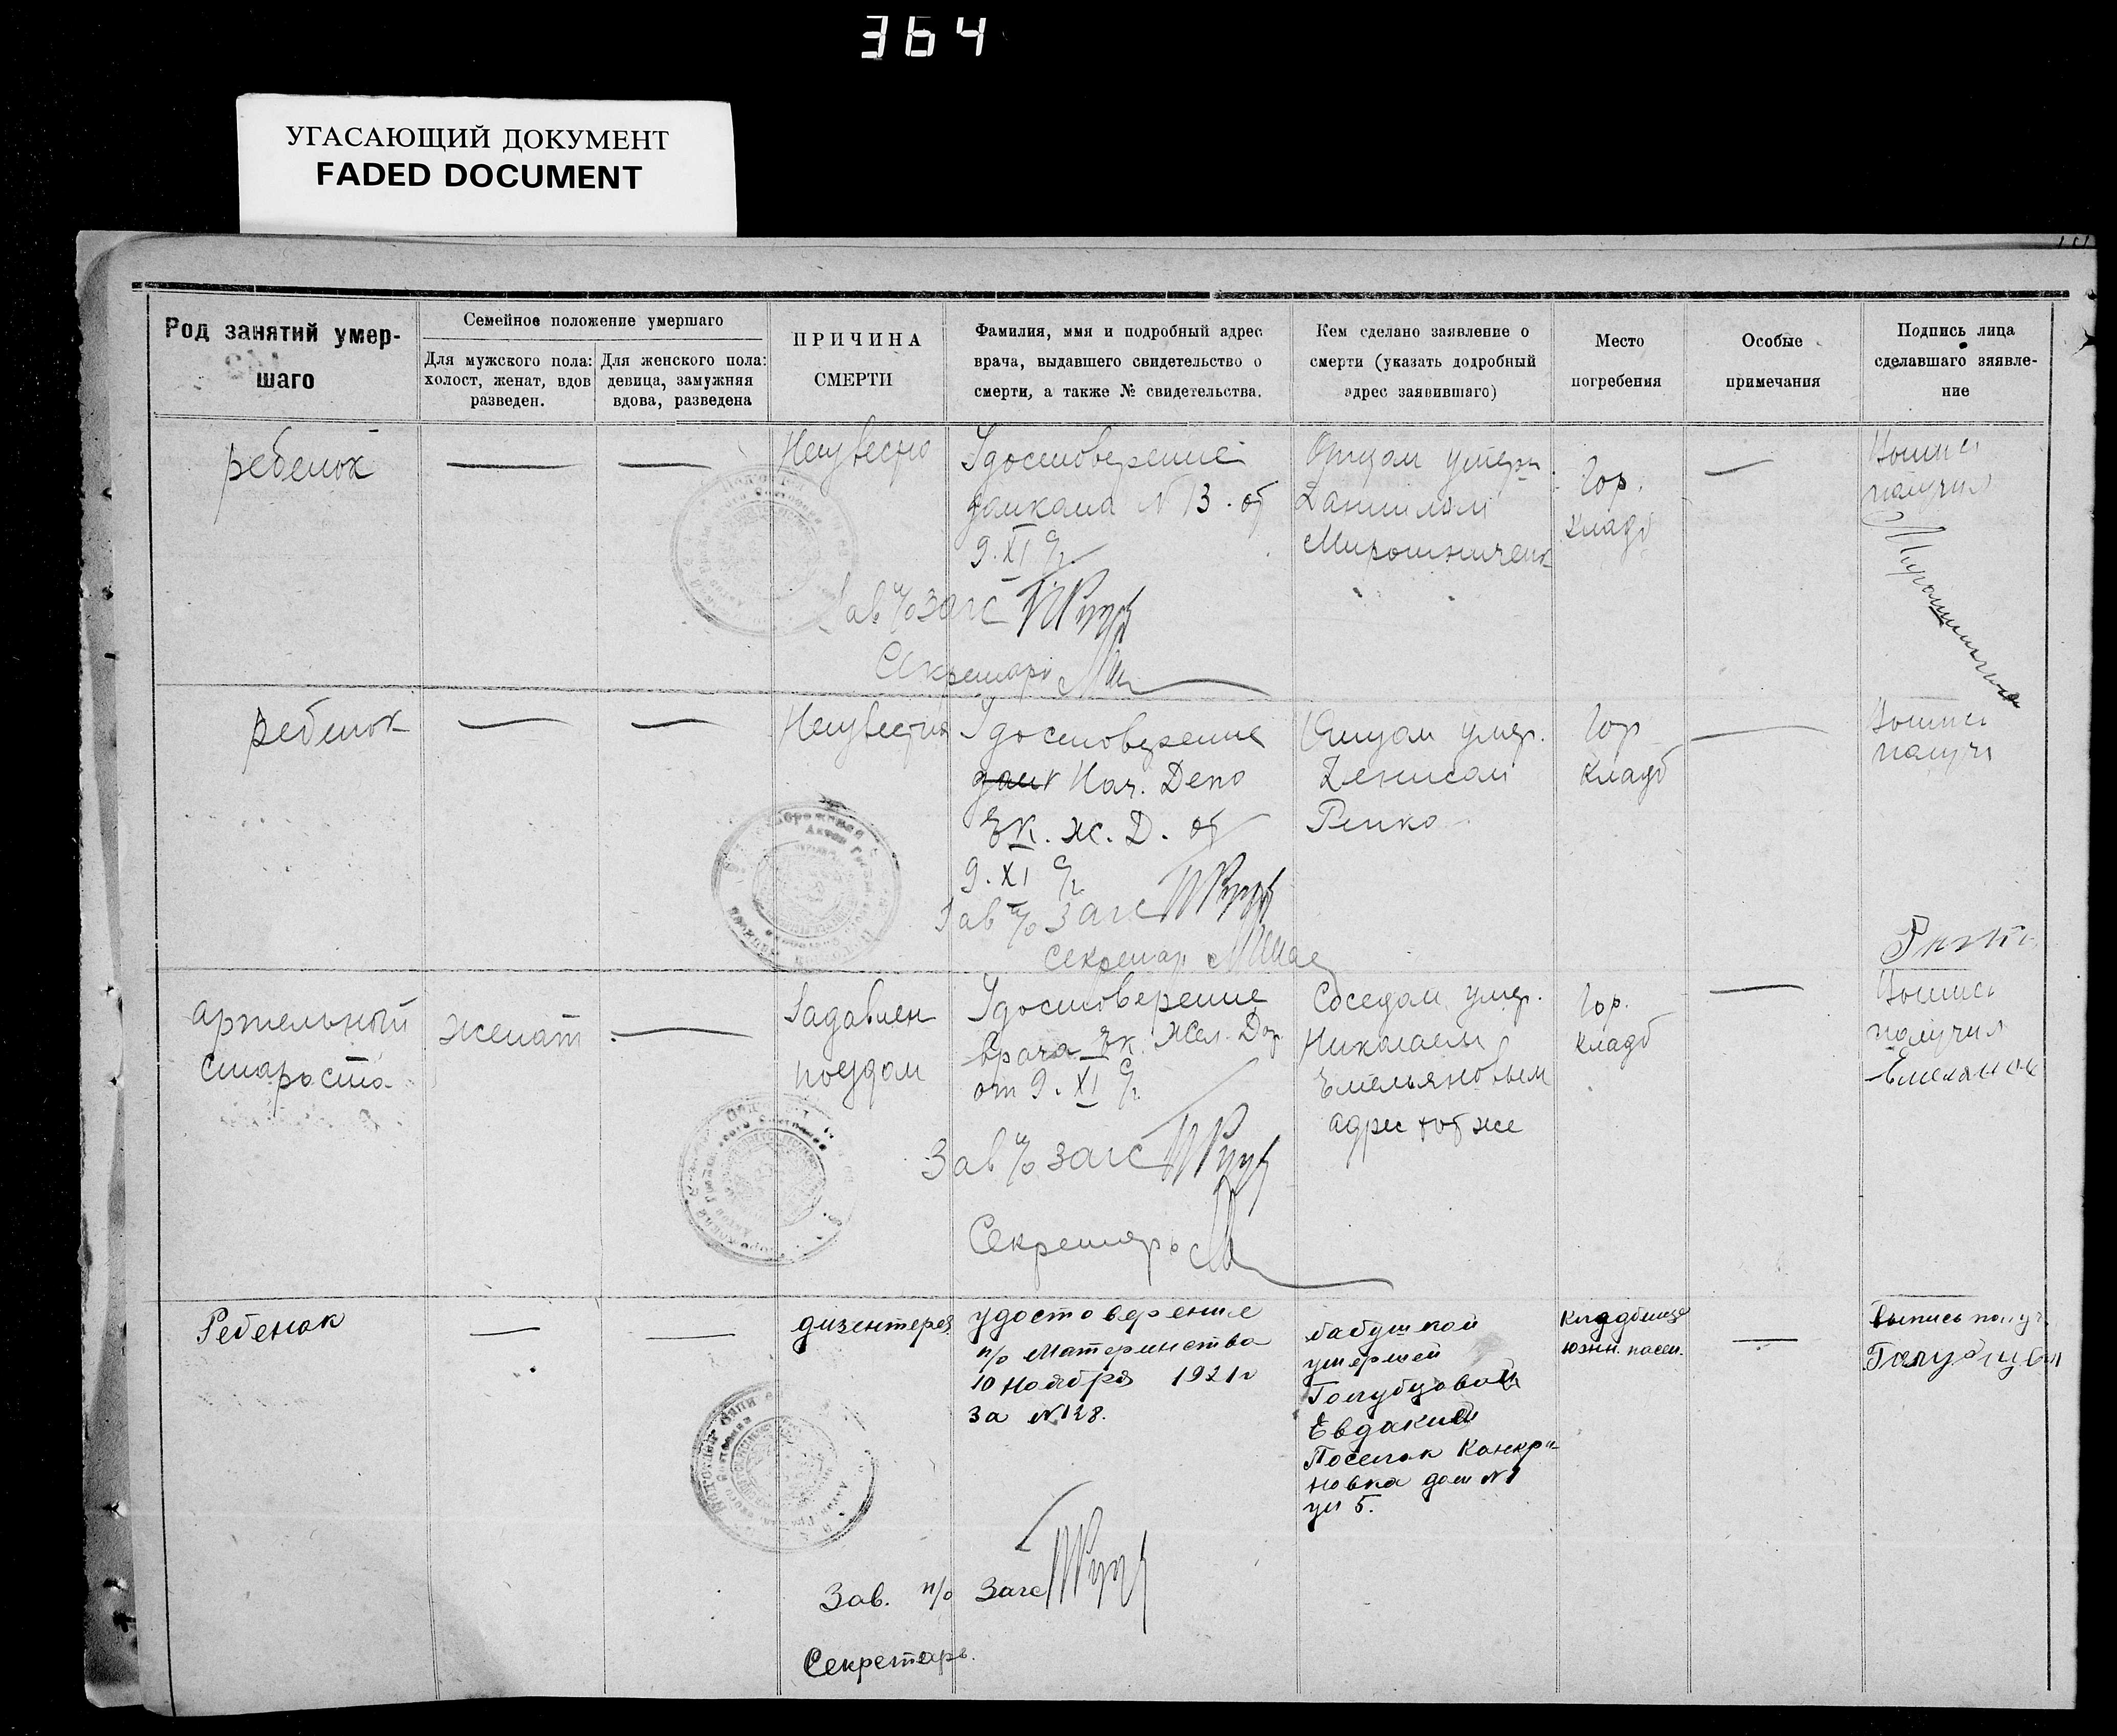 364
УГАСАЮЩИЙ ДОКУМЕНТ
FADED DOCUMENT
Род занятий умер-
шаго
Семейное положение умершаго
Для мужского пола:
холост, женат, вдов
разведен.
Для женского пола:
девица, замужняя
вдова, разведена
ПРИЧИНА
СМЕРТИ
Фамилия, имя и подробный адрес
врача, выдавшего свидетельство о
смерти, а также № свидетельства.
Кем сделано заявление о
смерти (указать додробный
адрес заявившаго)
Место
погребения
Особые
примечания
Подпись лица
сделавшаго зяявле-
ние
ребенок
—
—
Неизвестно
Удостоверение
домкама N 13. от
9. XI с/г
Отцом умерш.
Даниилом
Мирошниченк
Гор.
кладб
—
Выпись
получил
Мирошниченко
Зав п/о загс
Секретарь
ребенок
—
—
Неизвестна
Удостоверение
Нач. Депо
Ек. ж. Д. от
9. XI с/г
Отцом умер.
Денисом
Репко
Гор
кладб
—
Выпись
получи
Зав п/о загс
Секретар
артельный
староста
женат
—
Задавлен
поездом
Удостоверение
врача Ек. Жел. Дор
от 9. XI с/г
Соседом умер.
Николаем
Емельяновым
адрес тот же
Гор.
кладб
—
Выпись
получил
Емельянов
Зав п/о загс
Секретарь
Ребенок
—
—
дизентерея
удостоверение
п/о Материнства
10 Ноября 1921г
за N 128.
бабушкой
умершей
Голубцовой
Евдакией
Поселок Канкри
новка дом N 1
ул 5.
Кладбище
южн. посел.
—
Выпись получ
Голубцова
Зав. п/о Загс
Секретарь.